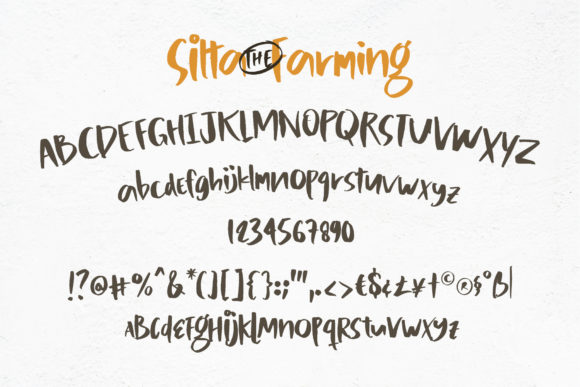 Sitta THE Farming
ABCDEFGHIJKLMNOPQRSTUVWXYZ
abcdefghijklmnopqrstuvwxyz
1234567890
!?@#%^&*()[]{}:;"',.<>€$¢£¥†©®§°B|
ABCdEFghijklmnopqrstuvwxyz